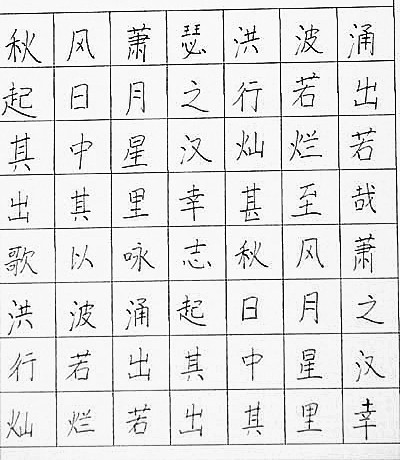 秋风萧瑟洪波涌
起日月之行若出
其中星汉灿烂若
出其里幸甚至哉
歌以咏志秋风萧
洪波涌起日月之
行若出其中星汉
灿烂若出其里幸